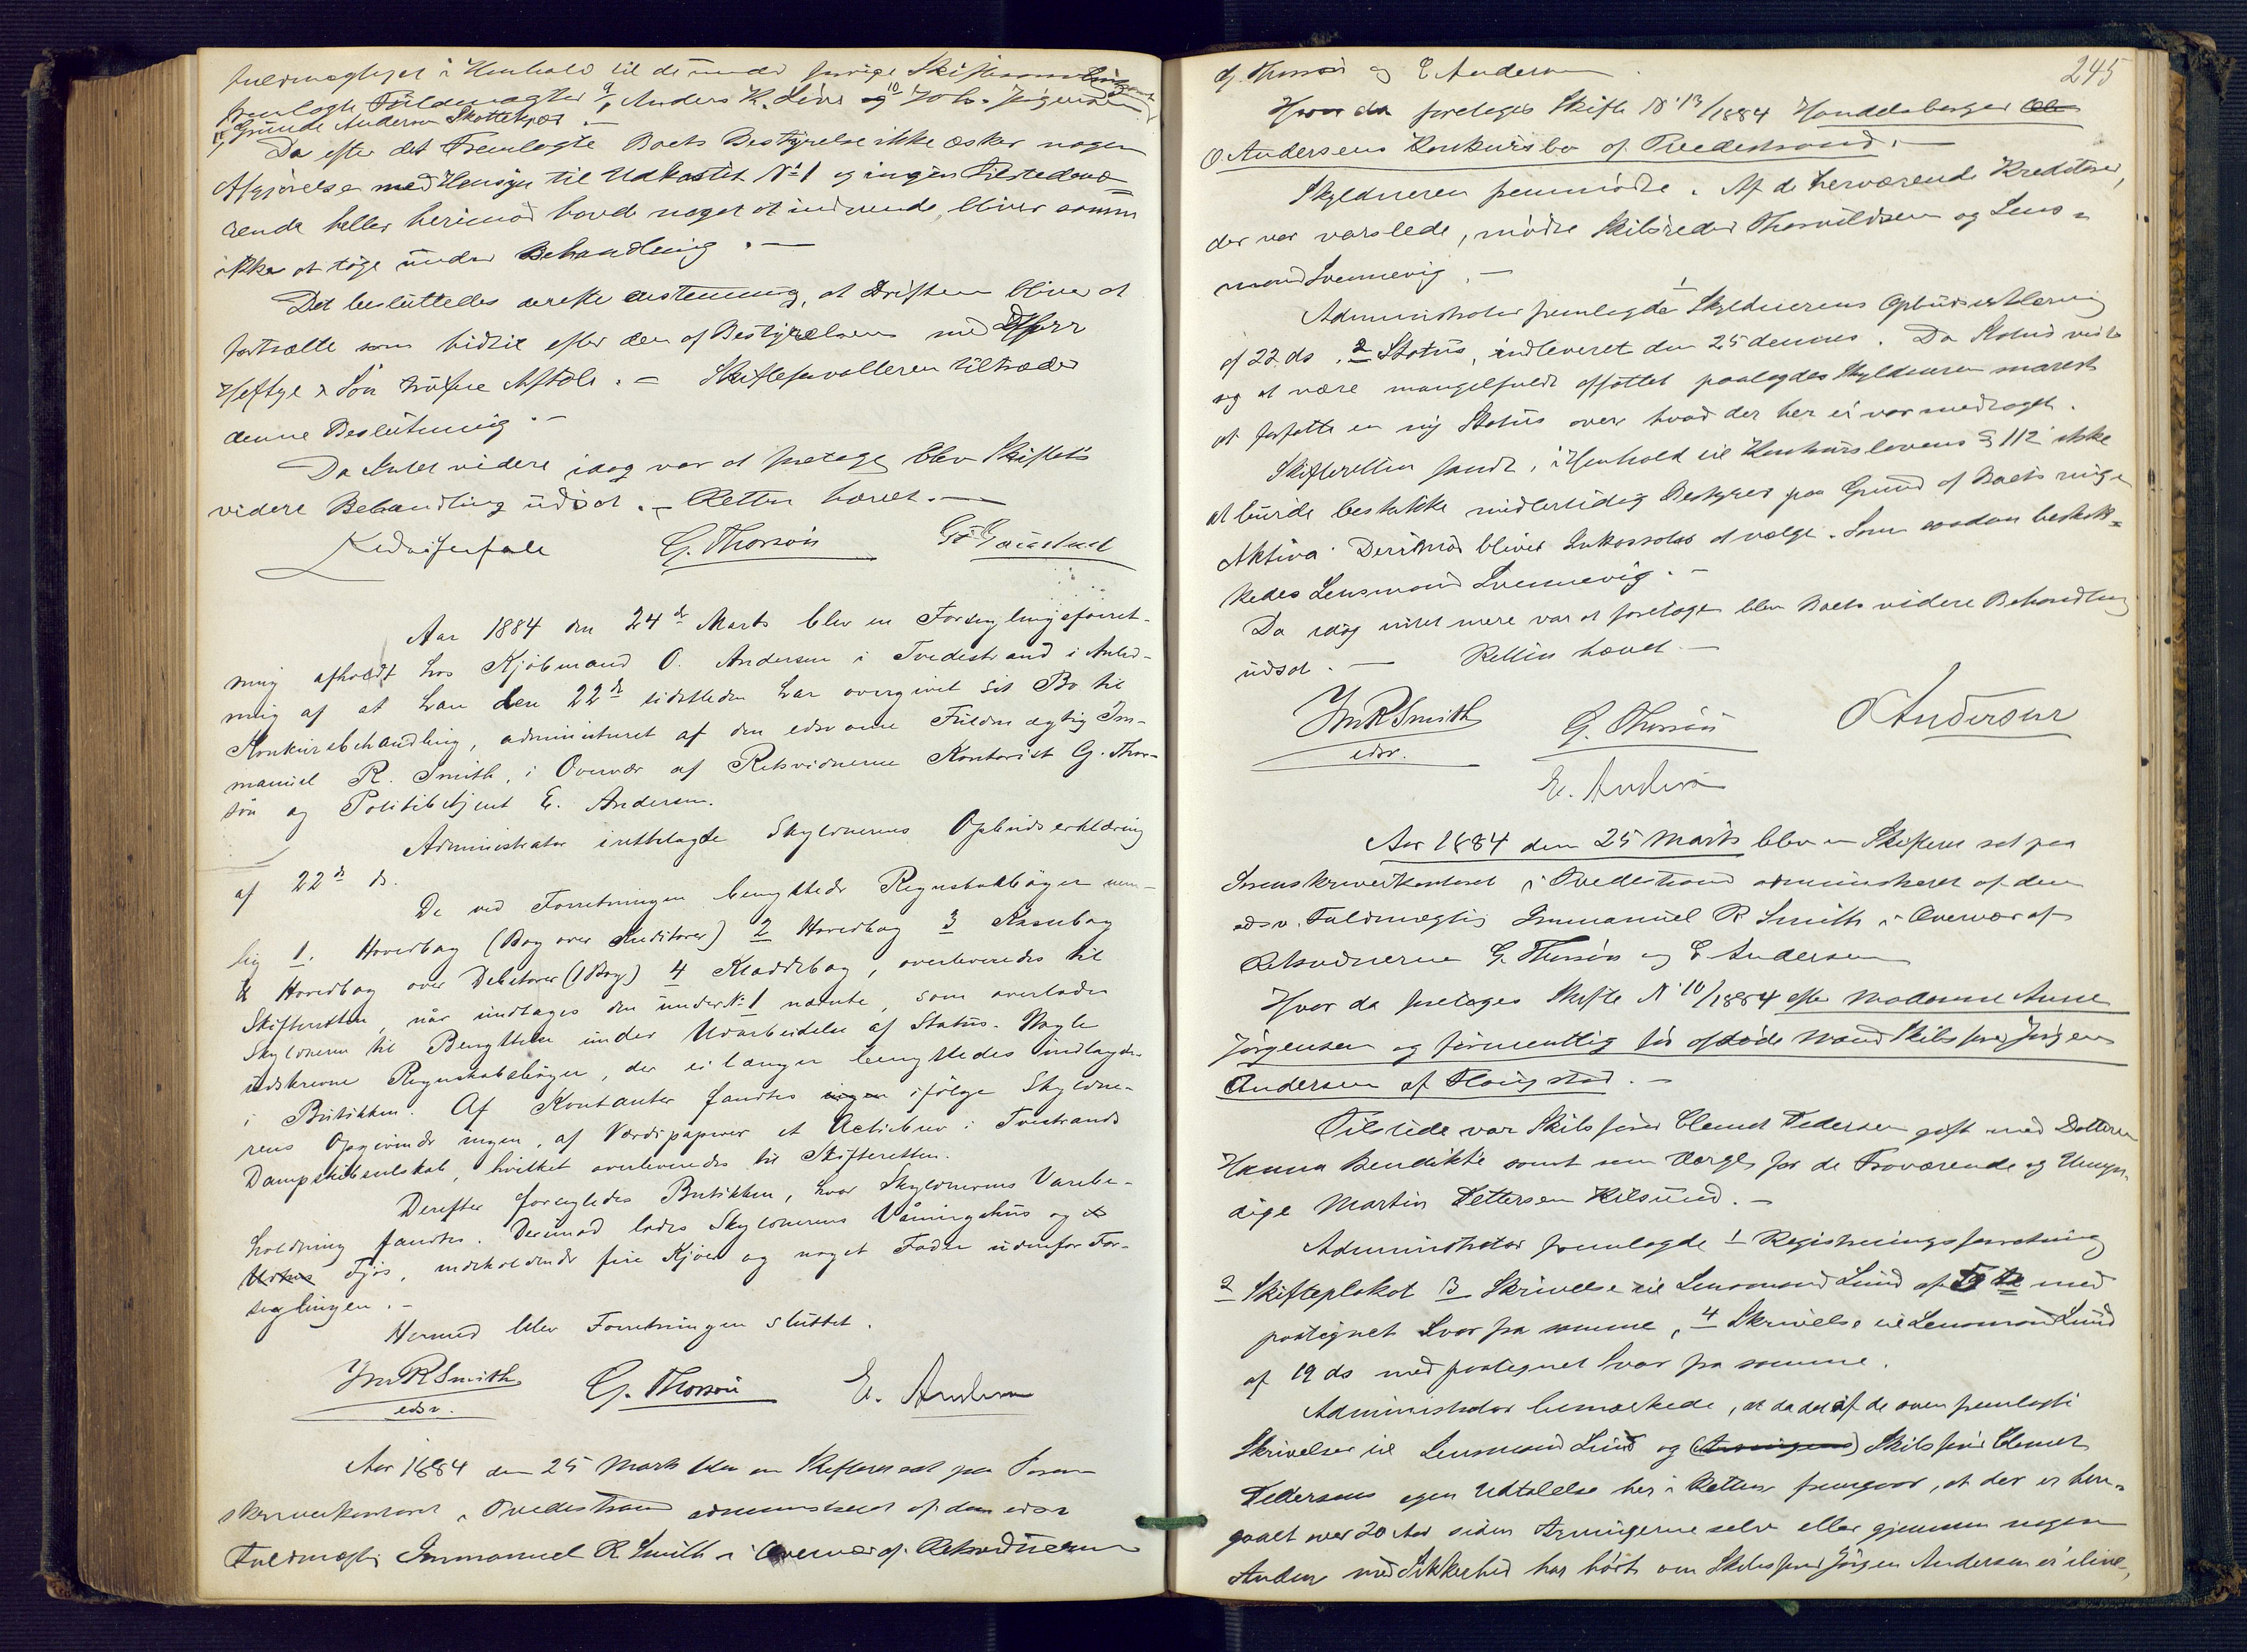 fuldmægtiget i Henhold til de under forrige Skiftesamling
fremlagte Fuldmagter 9/ Anders K. Lövs og 10 Joh. Jörgensen
11/ Gunde Andersen Skottekjær. —
Da efter det Fremlagte Boets Bestyrelse ikke æsker nogen
Afgjörelse med Hensyn til Udkastet No 1 og ingen Tilstedevæ-
rende heller herimod havde noget at indvende, bliver samme
ikke at tage under Behandling. —
Det besluttedes derefter eenstemmig, at Driften bliver at
fortsætte som hidtil efter den af Bestyrelsen med D'Herr
Heftye & Sön trufne Aftale. — Skifteforvalteren tiltræder
denne Beslutning. —
Da Intet videre idag var at foretage blev Skiftets
videre Behandling udsat. — Retten hævet. —
G. Thorsön
Aar 1884 den 24de Marts blev en Forseglingsforret-
ning afholdt hos Kjöbmand O. Andersen i Tvedestrand i Anled-
ning af at han den 22de sidstleden har overgivet sit Bo til
Konkursbehandling, administreret af den edsvorne Fuldmægtig Im-
manuel R. Smith, i Overvær af Retsvidnerne Kontorist G. Thor-
sön og Politibetjent E. Andersen.
Administrator irettelagde Skyldnerens Opbudserklæring
af 22de ds.
De ved Forretningen benyttede Regnskabsböger nem-
lig 1. Hovedbog (Bog over Kreditorer) 2 Hovedbog 3 Kassabog
& Hovedbog over Debitorer (1 Bog) 4 Kladdebog, overleveredes til
Skifteretten, når undtages den under No 1 nævnte, som overlades
Skyldneren til Benyttelse under Udarbeidelse af Status. Nogle
udskrevne Regnskabsböger, der ei længer benyttedes indlagdes
i Butikken. Af Kontanter fandtes ingen ifölge Skyldne-
rens Opgivende ingen, af Værdipapirer et Actiebrev i Tvestrands
Dampskibsselskab, hvilket overleveredes til Skifteretten.
Derefter forsegledes Butikken, hvor Skyldnerens Varebe-
holdning fandtes. Derimod lodes Skyldnerens Våningshus og et
Udhus Fjös, indeholdende fire Kjöer og noget Foder udenfor For-
seglingen. —
Hermed blev Forretningen sluttet.
Im R Smith G. Thorsön E. Andersen
edsv.
Aar 1884 den 25 Marts blev en Skifteret sat paa Soren-
skriverkontoret i Tvedestrand administreret af den edsv
Fuldmægtig Immanuel R Smith i Overvær af Retsvidnerne
245
G. Thorsön og E Andersen.
Hvor da foretoges Skifte No 13/1884 Handelsborger Ole
O Andersens Konkursbo af Tvedestrand. —
Skyldneren fremmödte. Af de herværende Kreditorer,
der var varslede, mödte Skibsreder Thorvildsen og Lens-
mand Svennevig. —
Administrator fremlagde 1 Skyldnerens Opbudserklæring
af 22 ds. 2 Status, indleveret den 25 dennes. Da Status viste
sig at være mangelfuldt affattet paalagdes Skyldneren snarest
at forfatte en ny Status over hvad der her ei var medtaget.
Skifteretten fandt, i Henhold til Konkurslovens § 112 ikke
at burde beskikke midlertidig Bestyrer paa Grund af Boets ringe
Aktiva. Derimod bliver Inkassator at vælge. Som saadan beskik-
kedes Lensmand Svennevig. —
Da idag intet mere var at foretage blev Boets videre Behandling
udsat. — Retten hævet —
Im R Smith G. Thorsön O Andersen
edsv.
E. Andersen
Aar 1884 den 25 Marts blev en Skifteret sat paa
Sorenskriverkontoret i Tvedestrand administreret af den
edsv. Fuldmægtig Immanuel R Smith i Overvær af
Retsvidnerne G. Thorsön og E Andersen
Hvor da foretoges Skifte No 10/1884 efter Madamme Anne
Jörgensen og formentlig för afdöde Mand Skibsförer Jörgen
Andersen af Flangstad. —
Tilstede var Skibsförer Clemet Pedersen gift med Datteren
Hanna Bendikte samt som Værge for de Fraværende og Umyn-
dige Martin Pettersen Kilsund. —
Administrator fremlagde 1 Registreringsforretning
2 Skifteplakat 3 Skrivelse til Lensmand Lund af med
paategnet Svar fra samme, 4 Skrivelse til Lensmand Lund
af 19 ds med paategnet Svar fra samme.
Administrator bemærkede, at da det af de oven fremlagte
Skrivelser til Lensmand Lund og (Arvingens) Skibsförer Clemet
Pedersens egen Udtalelse her i Retten fremgaar, at der er hen-
gaaet over 20 Aar siden Arvingerne selv eller gjennem nogen
Anden med Sikkerhed har hört om Skibsförer Jörgen Andersen er ilive,